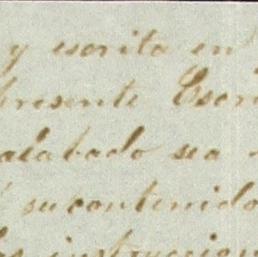 y escrita en
presente Escri
alabado sea
su contenido
las instruccion